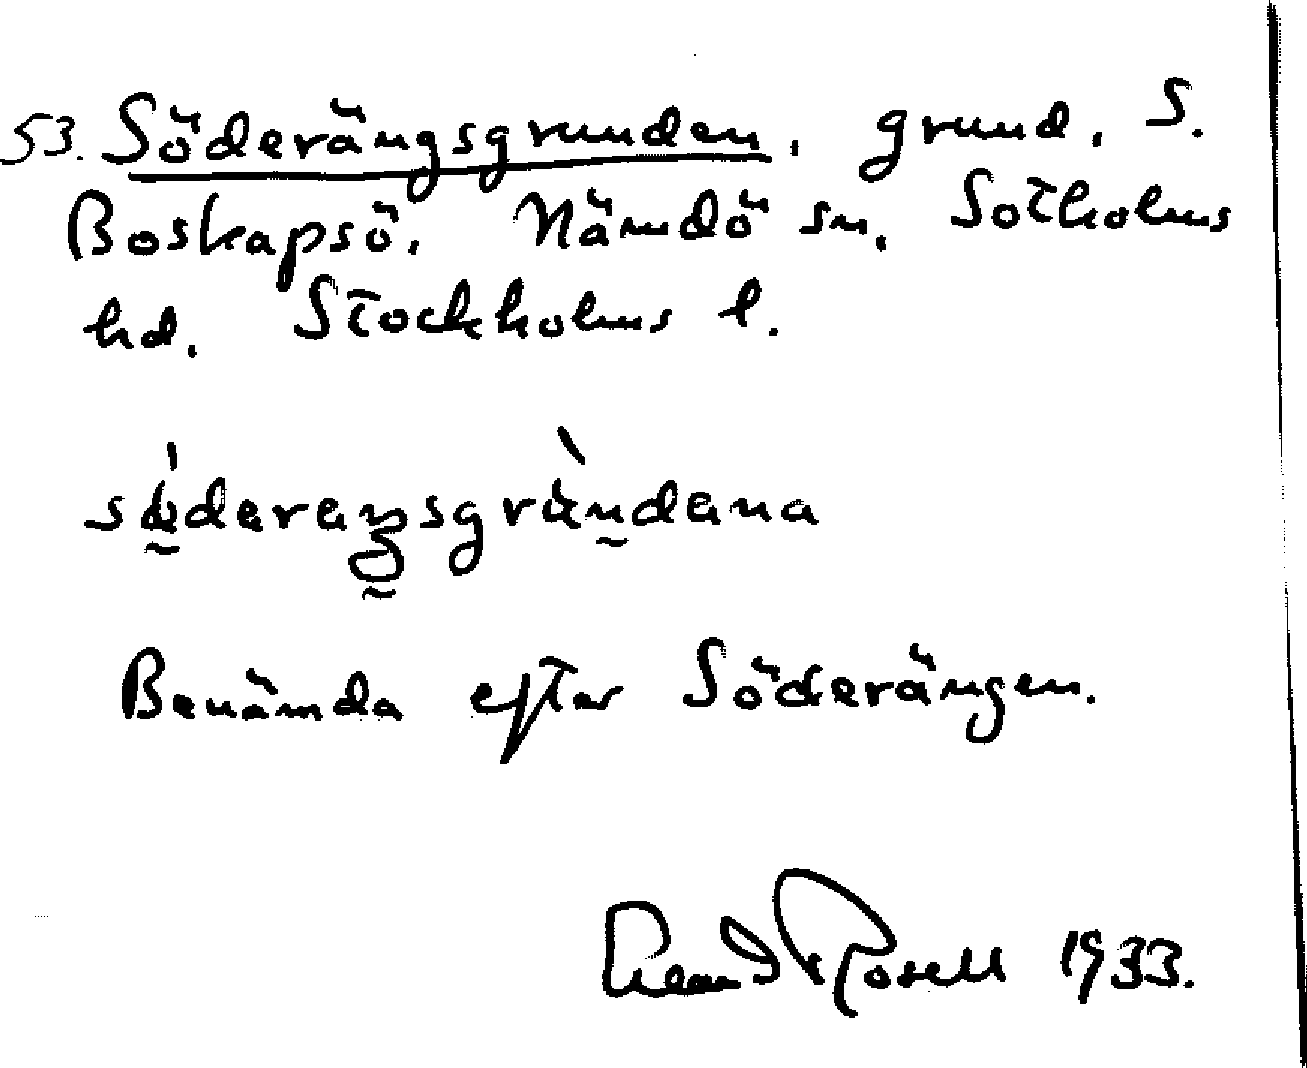 53. Söderängsgrunden, grund, S.
Boskapsö, Nämdö sn, Sotholms
hd, Stockholms l.
sʉ́derеŋsgrùndena
Benämda efter Söderängen.
Rosell 1933.